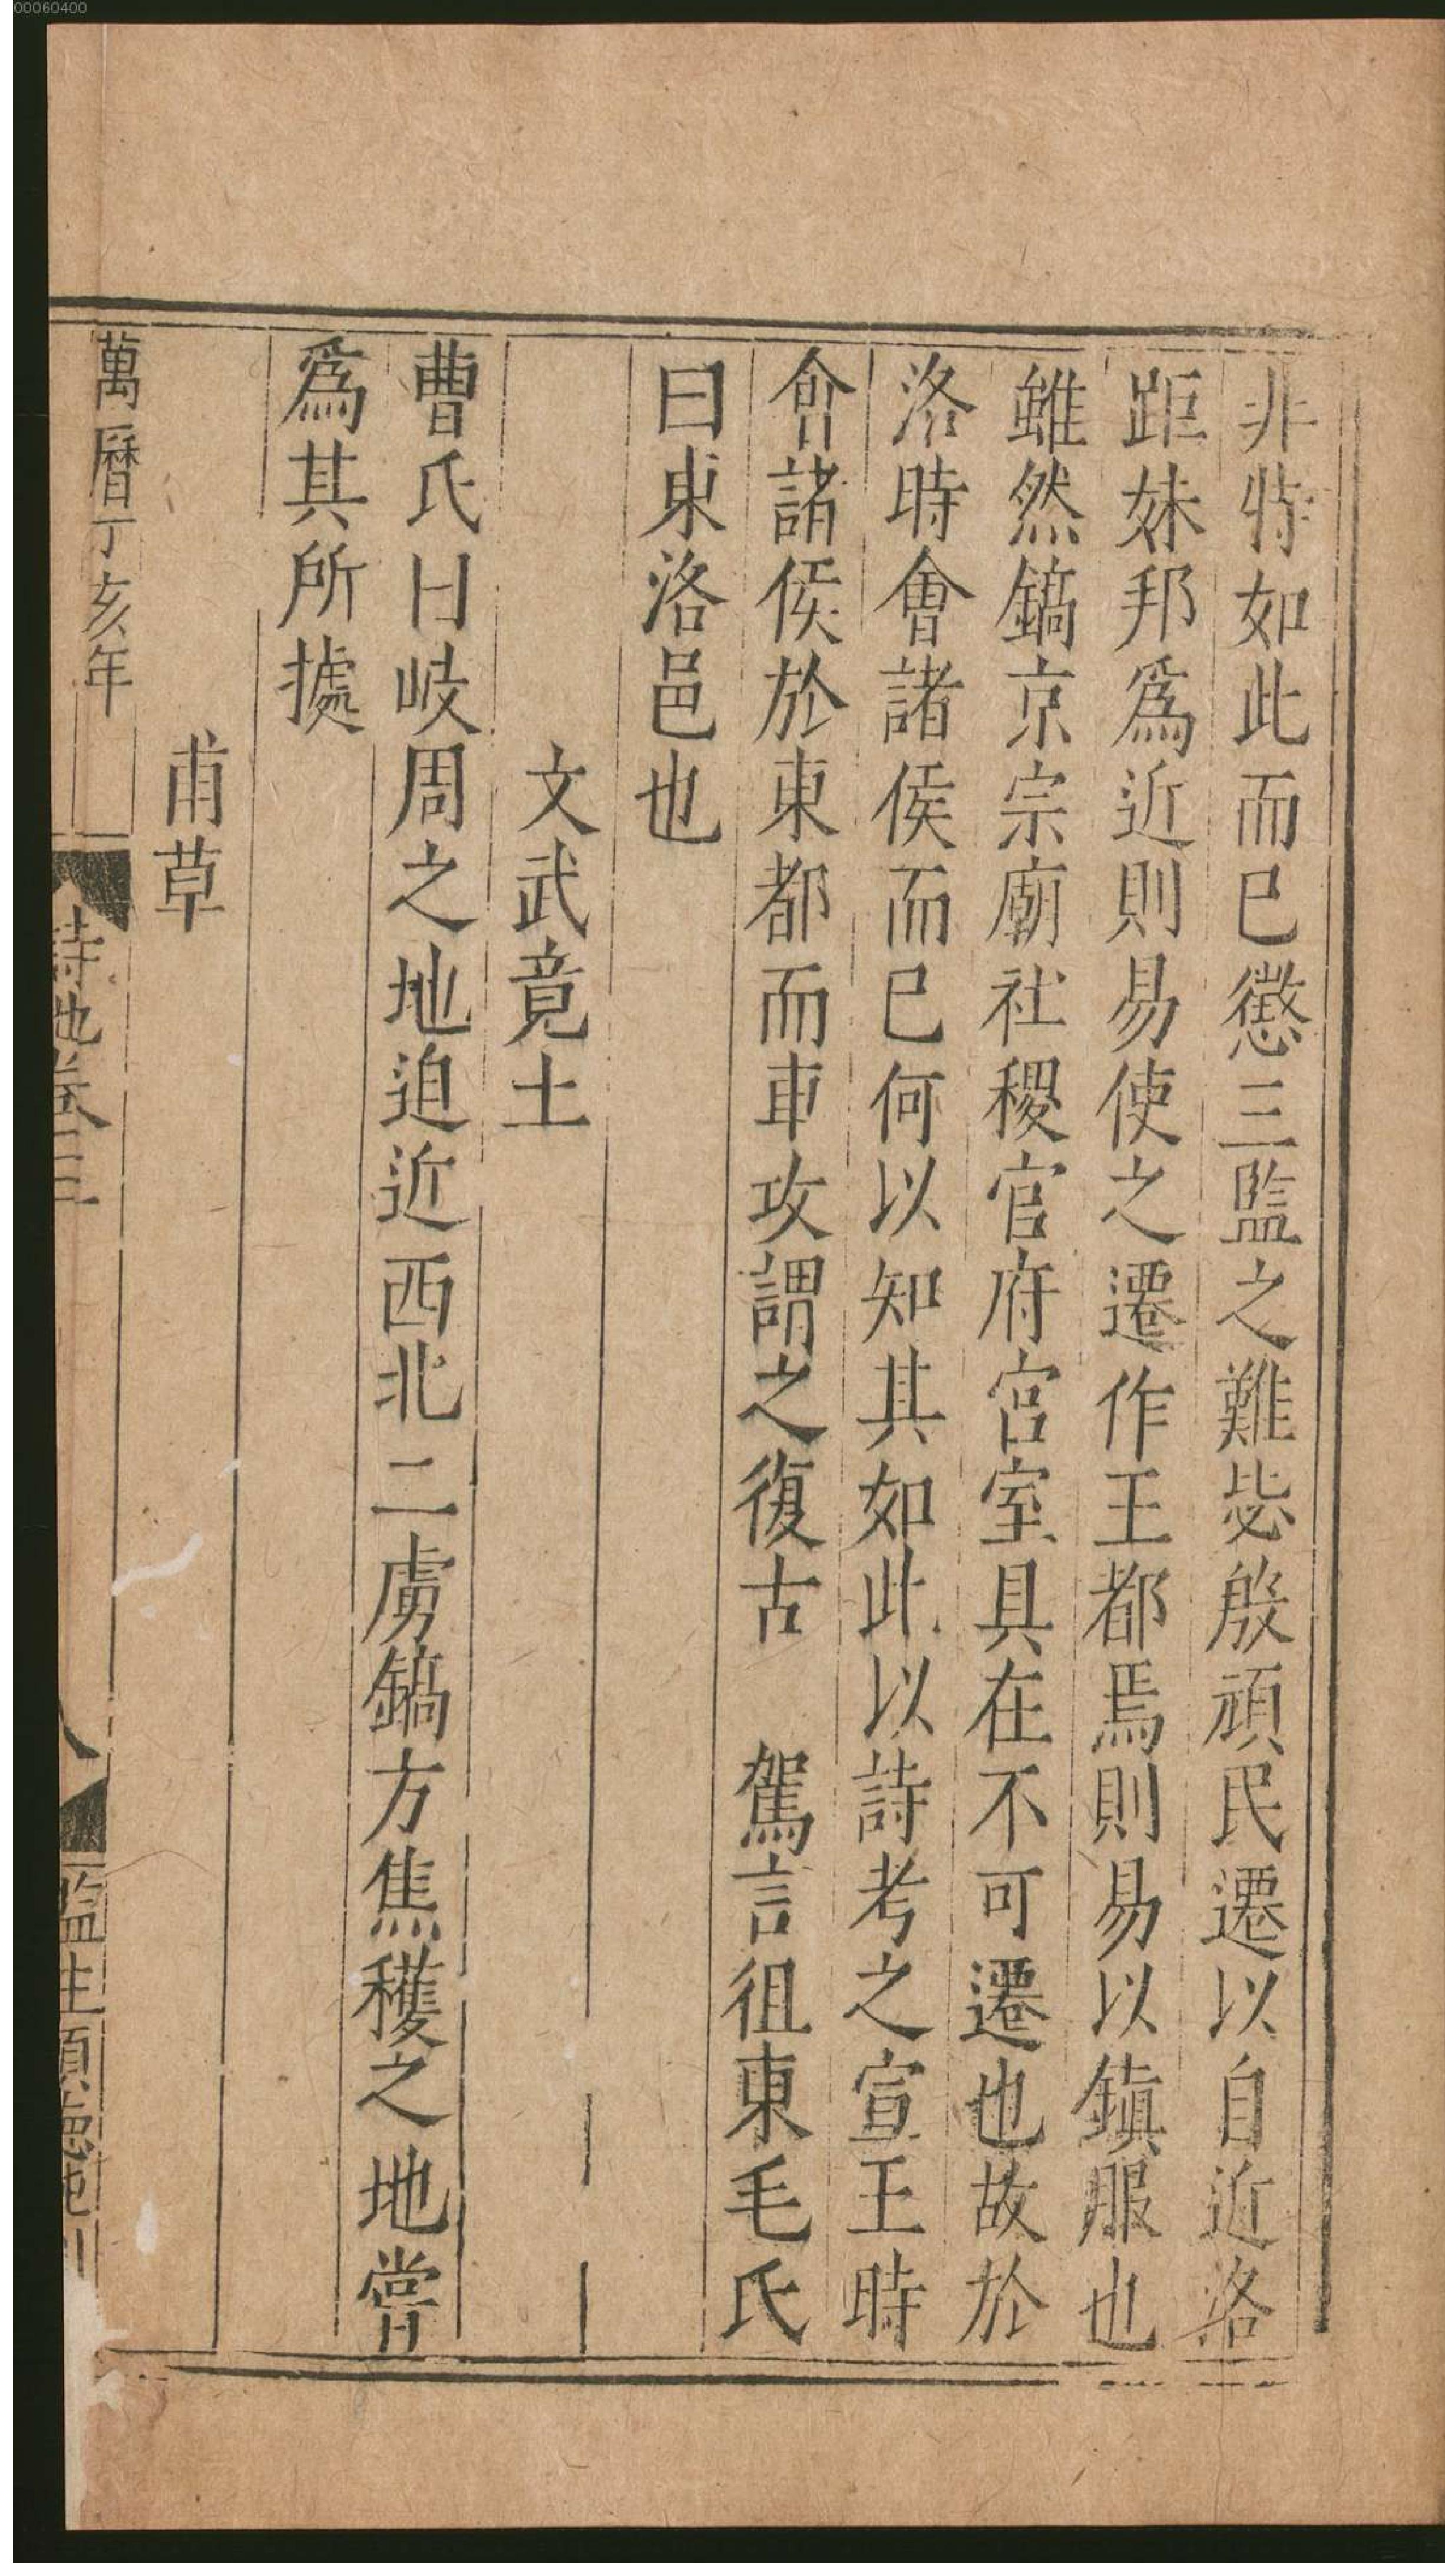 00060400
非特如此而已懲三監之難毖殷頑民遷以自近洛
距妹邦爲近則易使之遷作王都焉則易以鎮服也
雖然鎬京宗廟社稷官府宮室具在不可遷也故於
洛時會諸侯而已何以知其如此以詩考之宣王時
會諸侯於東都而車攻謂之復古　駕言徂東毛氏
曰東洛邑也
文武竟土
曹氏曰岐周之地迫近西北二虜鎬方焦穫之地嘗
爲其所據
甫草
萬曆丁亥年
詩地卷三
監生